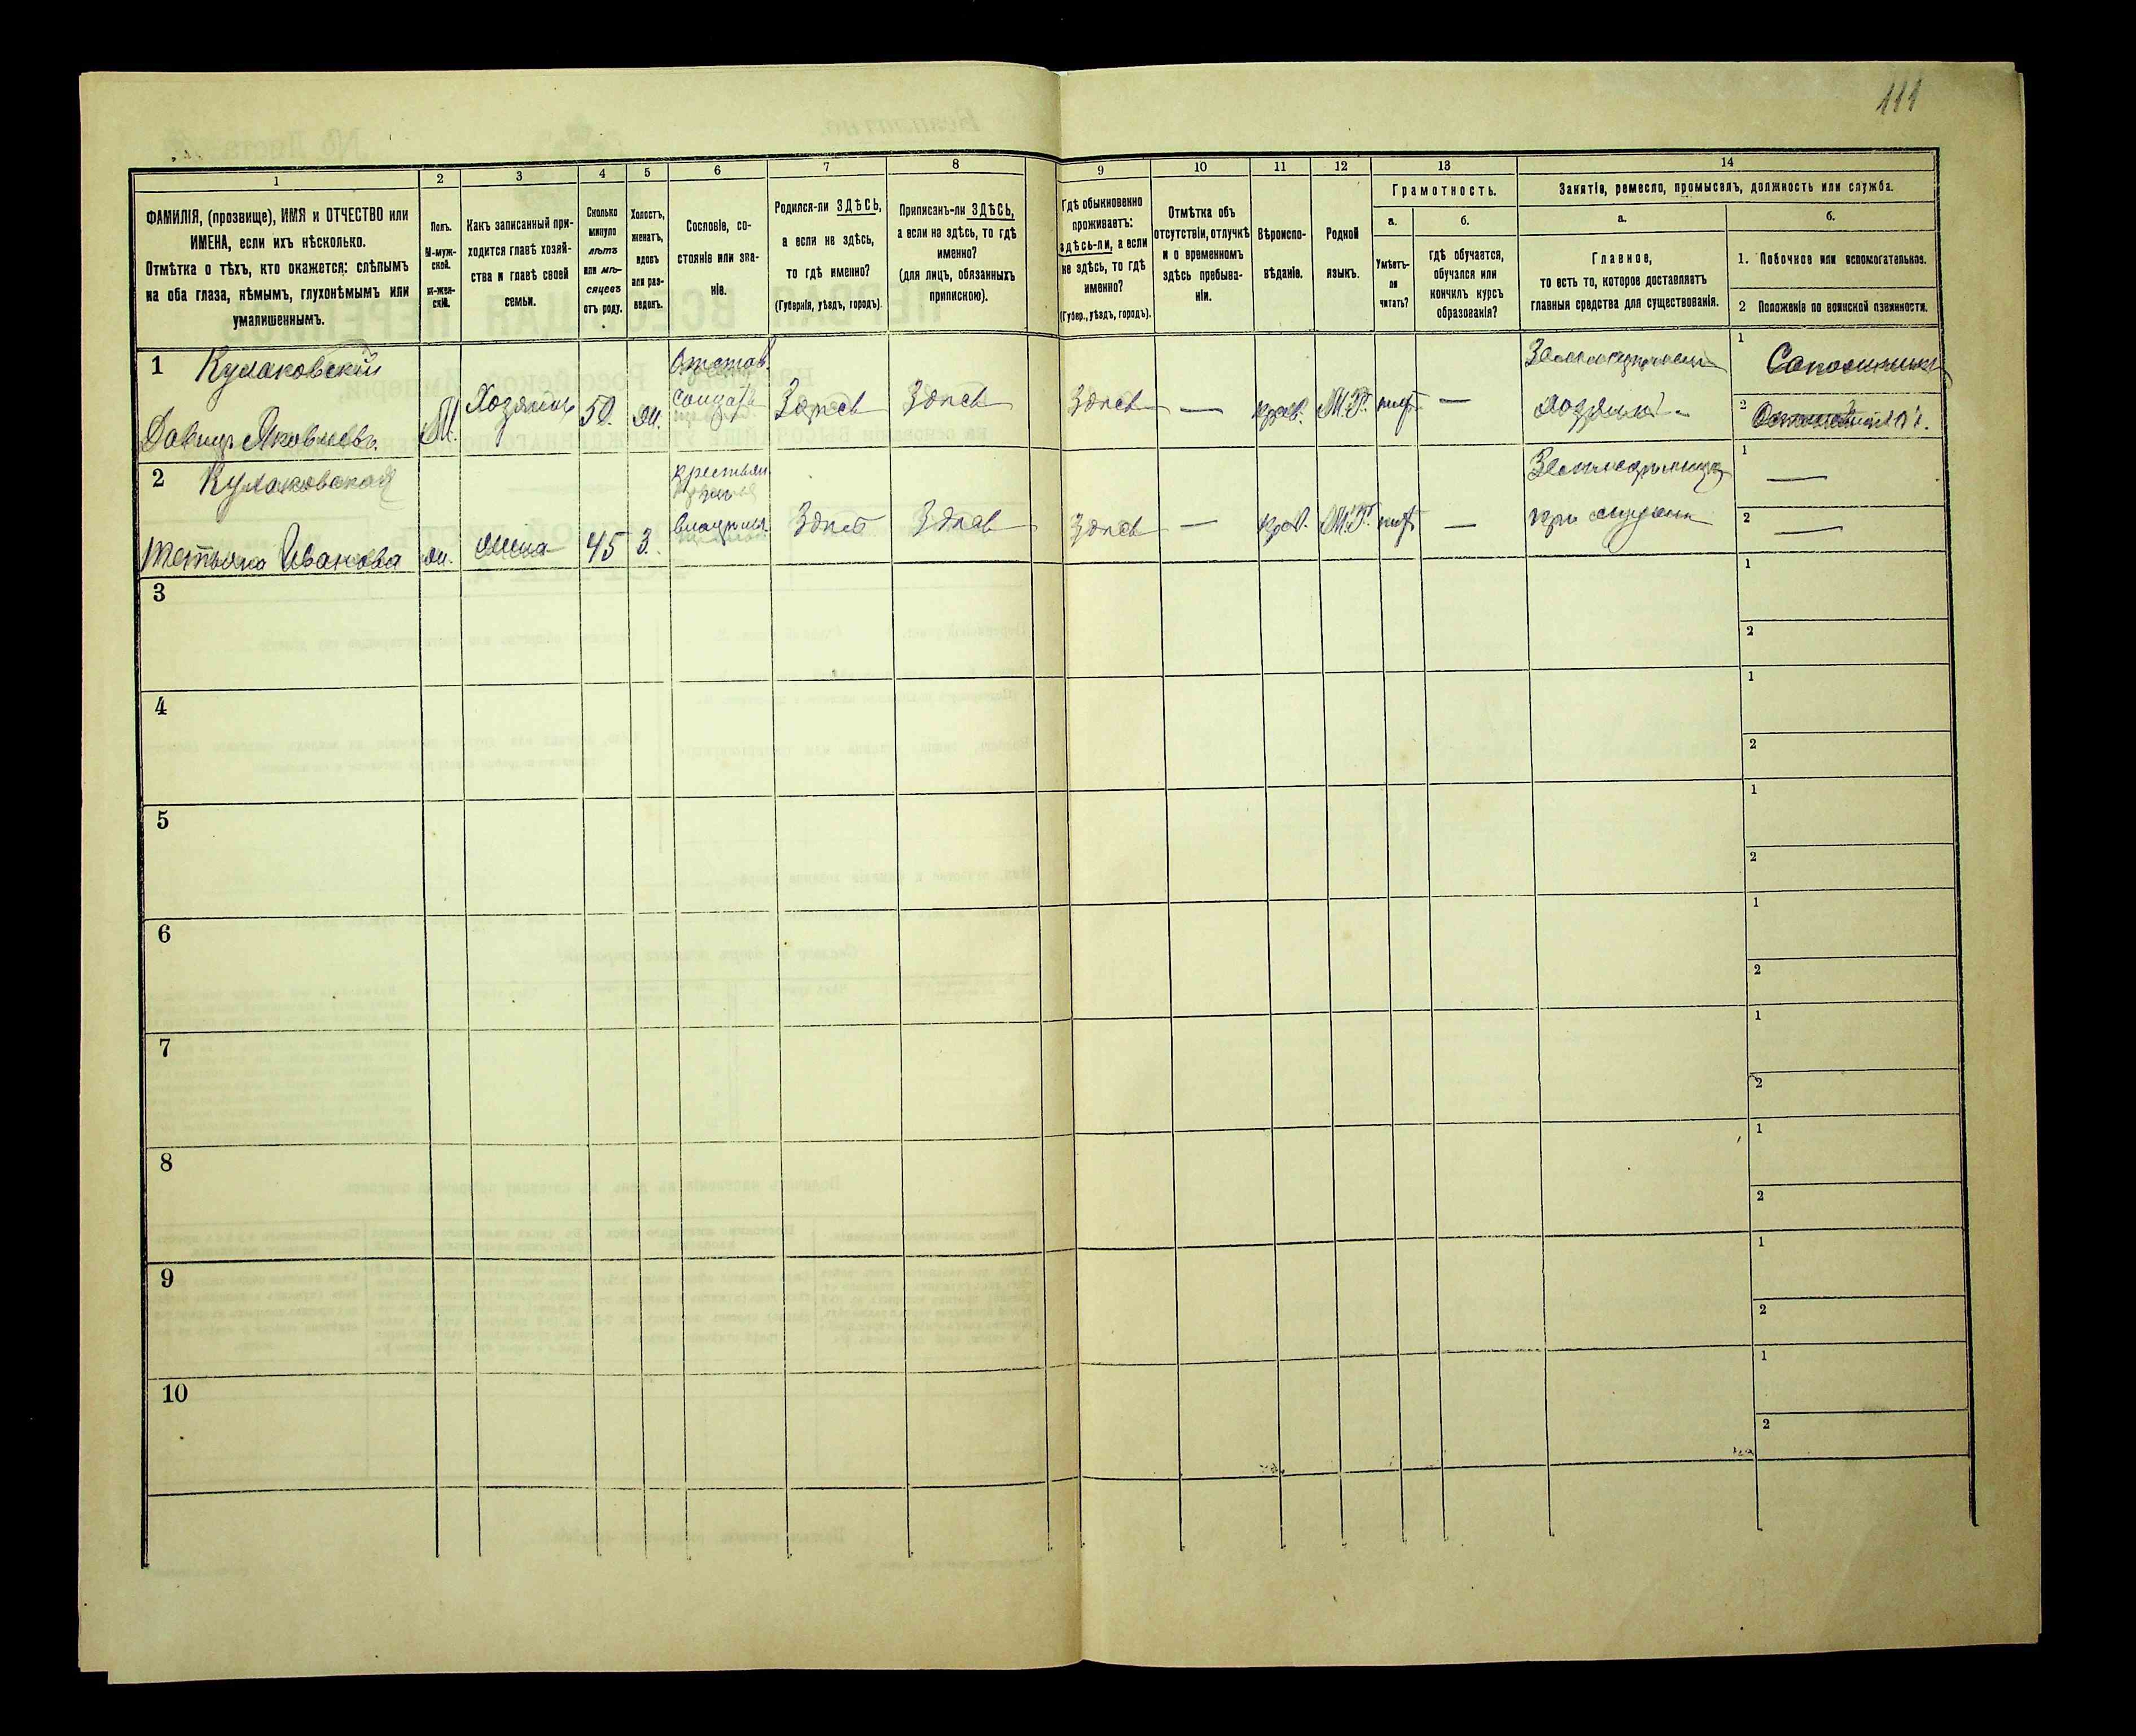 111
1
2
3
4
5
6
7
8
9
10
11
12
13
14
ФАМИЛІЯ, (прозвище), ИМЯ и ОТЧЕСТВО или
ИМЕНА, если ихъ нѣсколько.
Отмѣтка о тѣхъ, кто окажется: слѣпымъ
на оба глаза, нѣмымъ, глухонѣмымъ или
умалишеннымъ.
Полъ.
М-муж-
ской.
ж-жен-
скій.
Какъ записанный при-
ходится главѣ хозяй-
ства и главѣ своей
семьи.
Сколько
минуло
лѣтъ
или мѣ-
сяцевъ
отъ роду.
Холостъ,
женатъ,
вдовъ
или раз-
веденъ.
Сословіе, со-
стояніе или зва-
ніе.
Родился-ли ЗДѢСЬ,
а если не здѣсь,
то гдѣ именно?
(Губернія, уѣздъ, городъ).
Приписанъ-ли ЗДѢСЬ,
а если не здѣсь, то гдѣ
именно?
(для лицъ, обязанныхъ
припискою).
Гдѣ обыкновенно
проживаетъ:
здѣсь-ли, а если
не здѣсь, то гдѣ
именно?
(Губер., уѣздъ, городъ).
Отмѣтка объ
отсутствіи, отлучкѣ
и о временномъ
здѣсь пребыва-
ніи.
Вѣроиспо-
вѣданіе.
Родной
языкъ.
Грамотность.
а.
Умѣетъ-
ли
читать?
б.
гдѣ обучается,
обучался или
кончилъ курсъ
образованія?
Занятіе, ремесло, промыселъ, должность или служба.
а.
Главное,
то есть то, которое доставляетъ
главныя средства для существованія.
б.
1. Побочное или вспомогательное.
2 Положеніе по воинской повинности.
1 Кулаковскій
Давидъ Яковлевъ.
М.
Хозяинъ
50.
ж.
Отстав.
солдатъ
Здѣсь
Здѣсь
Здѣсь
—
прав.
М.Р.
нѣт
—
Земледѣлецъ
хозяинъ
1
Сапожникъ
2
2 Кулаковская
Тетьяна Иванова
ж.
жена
45
З.
крестьян.
владѣл.
Здѣсь
Здѣсь
Здѣсь
—
прав.
М.Р.
нѣт
—
Земледѣлица
при мужѣ
1 —
2 —
3
1
2
4
1
2
5
1
2
6
1
2
7
1
2
8
1
2
9
1
2
10
1
2